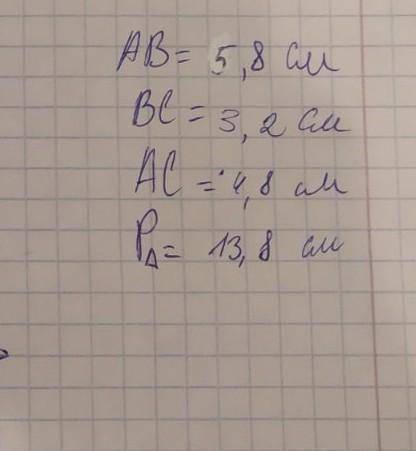 AB = 5,8 см
BC = 3,2 см
AC = 4,8 см
P△ = 13,8 см